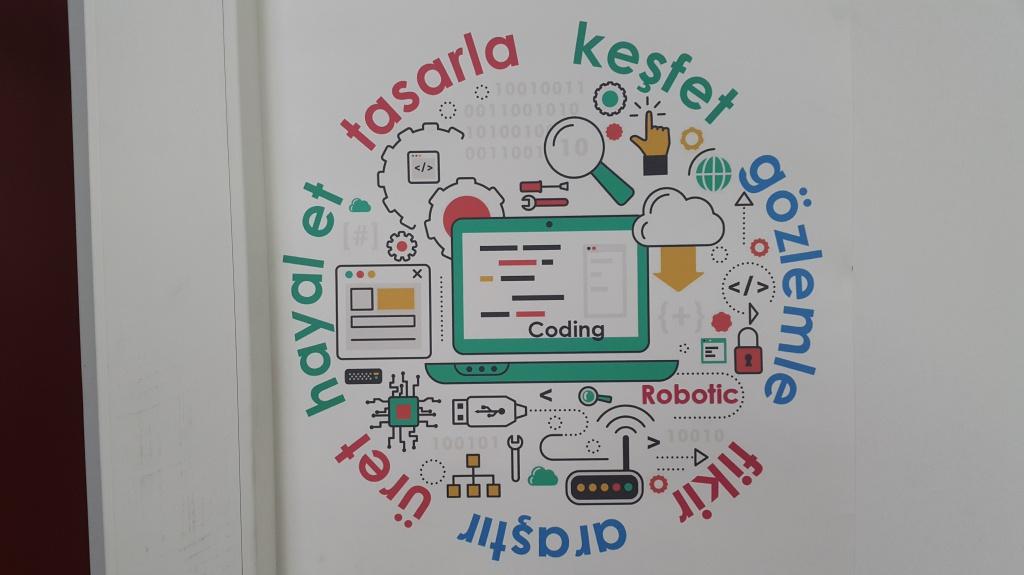 tasarla
keşfet
gözlemle
fikir
araştır
üret
hayal et
10010011
0011001010
1010010
10
0011001
</>
[#]
{+}
</>
Coding
Robotic
<
100101
>
10010